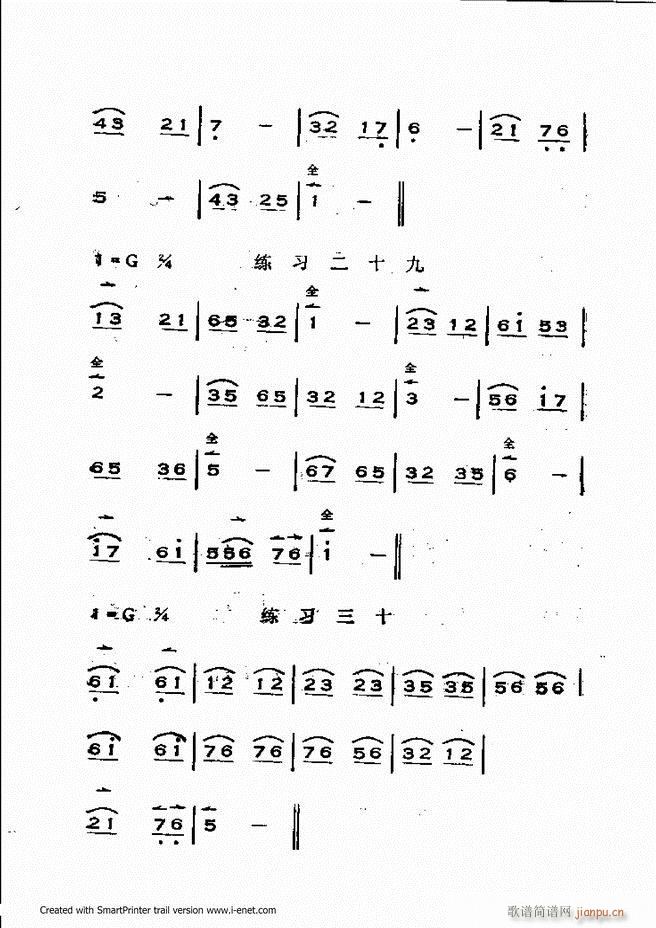 43 21 | 7 – | 32 17 | 6 – | 21 76 |
全
5 – | 43 25 | 1 – ‖
1=G 2/4 练习二十九
全
13 21 | 65 32 | 1 – | 23 12 | 6i 53 |
全 全
2 – | 35 65 | 32 12 | 3 – | 56 i7 |
全 全
65 36 | 5 – | 67 65 | 32 35 | 6 – |
全
i7 6i | 556 76 | i – ‖
1=G 2/4 练习三十
61 61 | 12 12 | 23 23 | 35 35 | 56 56 |
6i 6i | 76 76 | 76 56 | 32 12 |
21 76 | 5 – ‖
Created with SmartPrinter trail version www.i-enet.com
歌谱简谱网 jianpu.cn